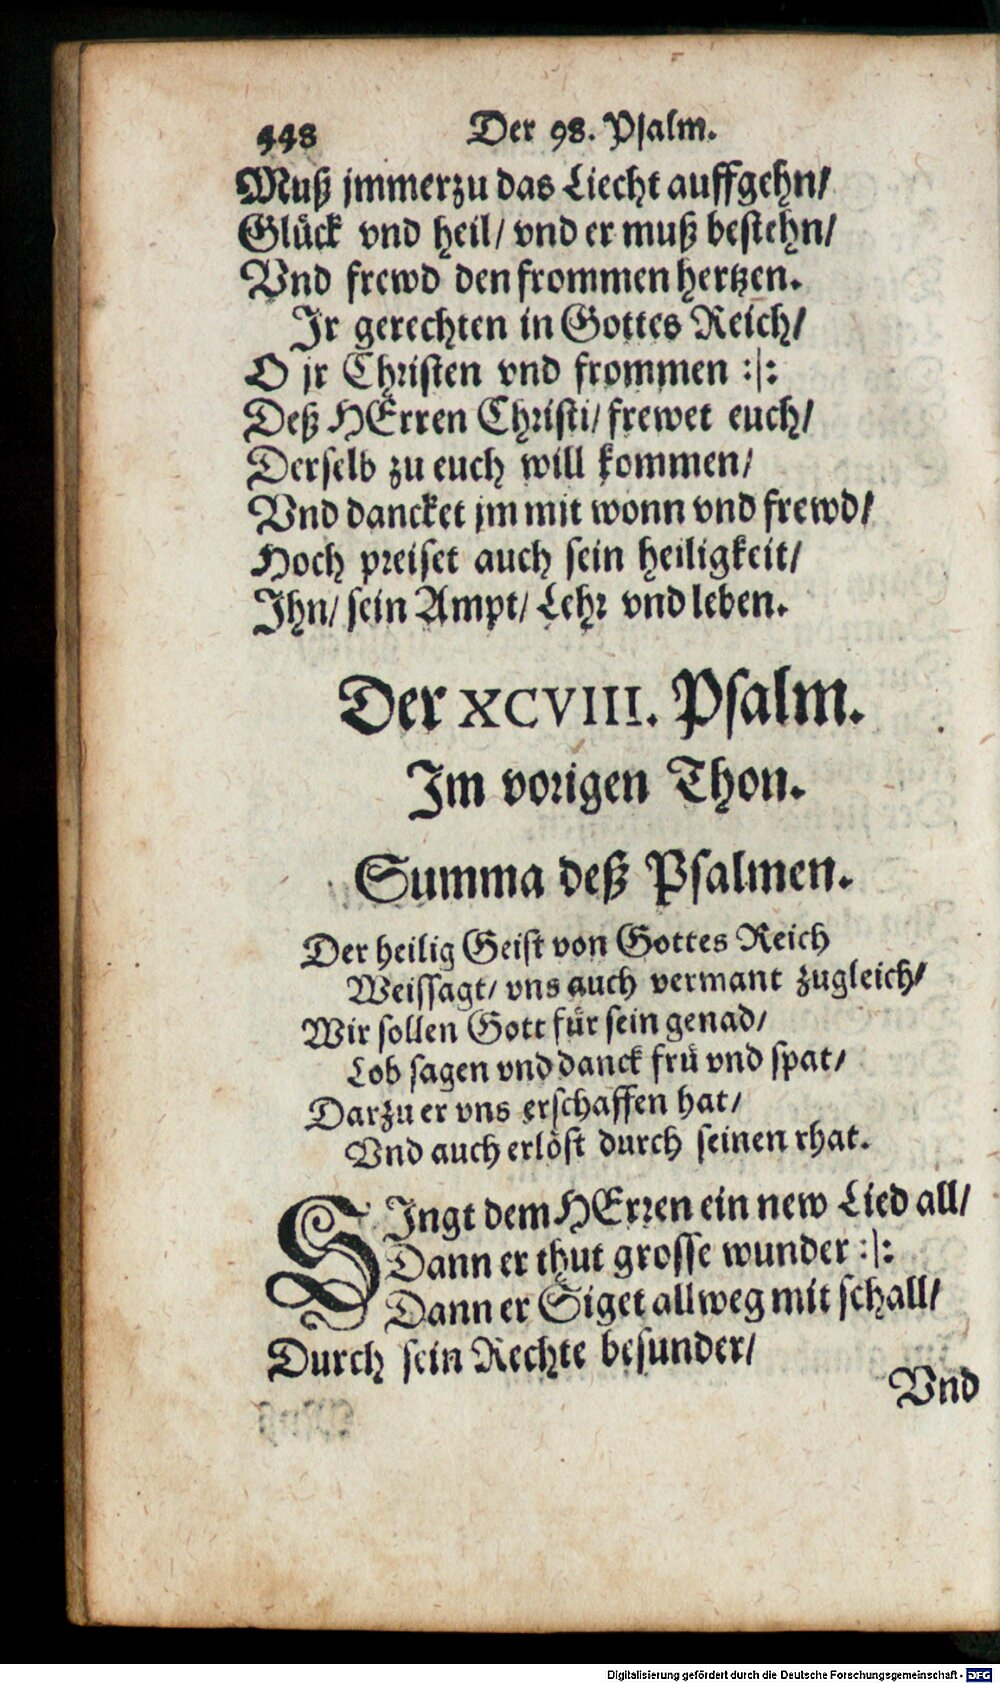 448 Der 98. Psalm.
Muß jmmerzu das Liecht auffgehn/
Glück vnd heil/ vnd er muß bestehn/
Vnd frewd den frommen hertzen.
Jr gerechten in Gottes Reich/
O jr Christen vnd frommen :|:
Deß HErren Christi/ frewet euch/
Derselb zu euch will kommen/
Vnd dancket jm mit wonn vnd frewd/
Hoch preiset auch sein heiligkeit/
Jhn/ sein Ampt/ Lehr vnd leben.
Der XCVIII. Psalm.
Jm vorigen Thon.
Summa deß Psalmen.
Der heilig Geist von Gottes Reich
Weissagt/ vns auch vermant zugleich/
Wir sollen Gott für sein genad/
Lob sagen vnd danck frü vnd spat/
Darzu er vns erschaffen hat/
Vnd auch erlöst durch seinen rhat.
SJngt dem HErren ein new Lied all/
Dann er thut grosse wunder :|:
Dann er Siget allweg mit schall/
Durch sein Rechte besunder/
Vnd
Digitalisierung gefördert durch die Deutsche Forschungsgemeinschaft - DFG